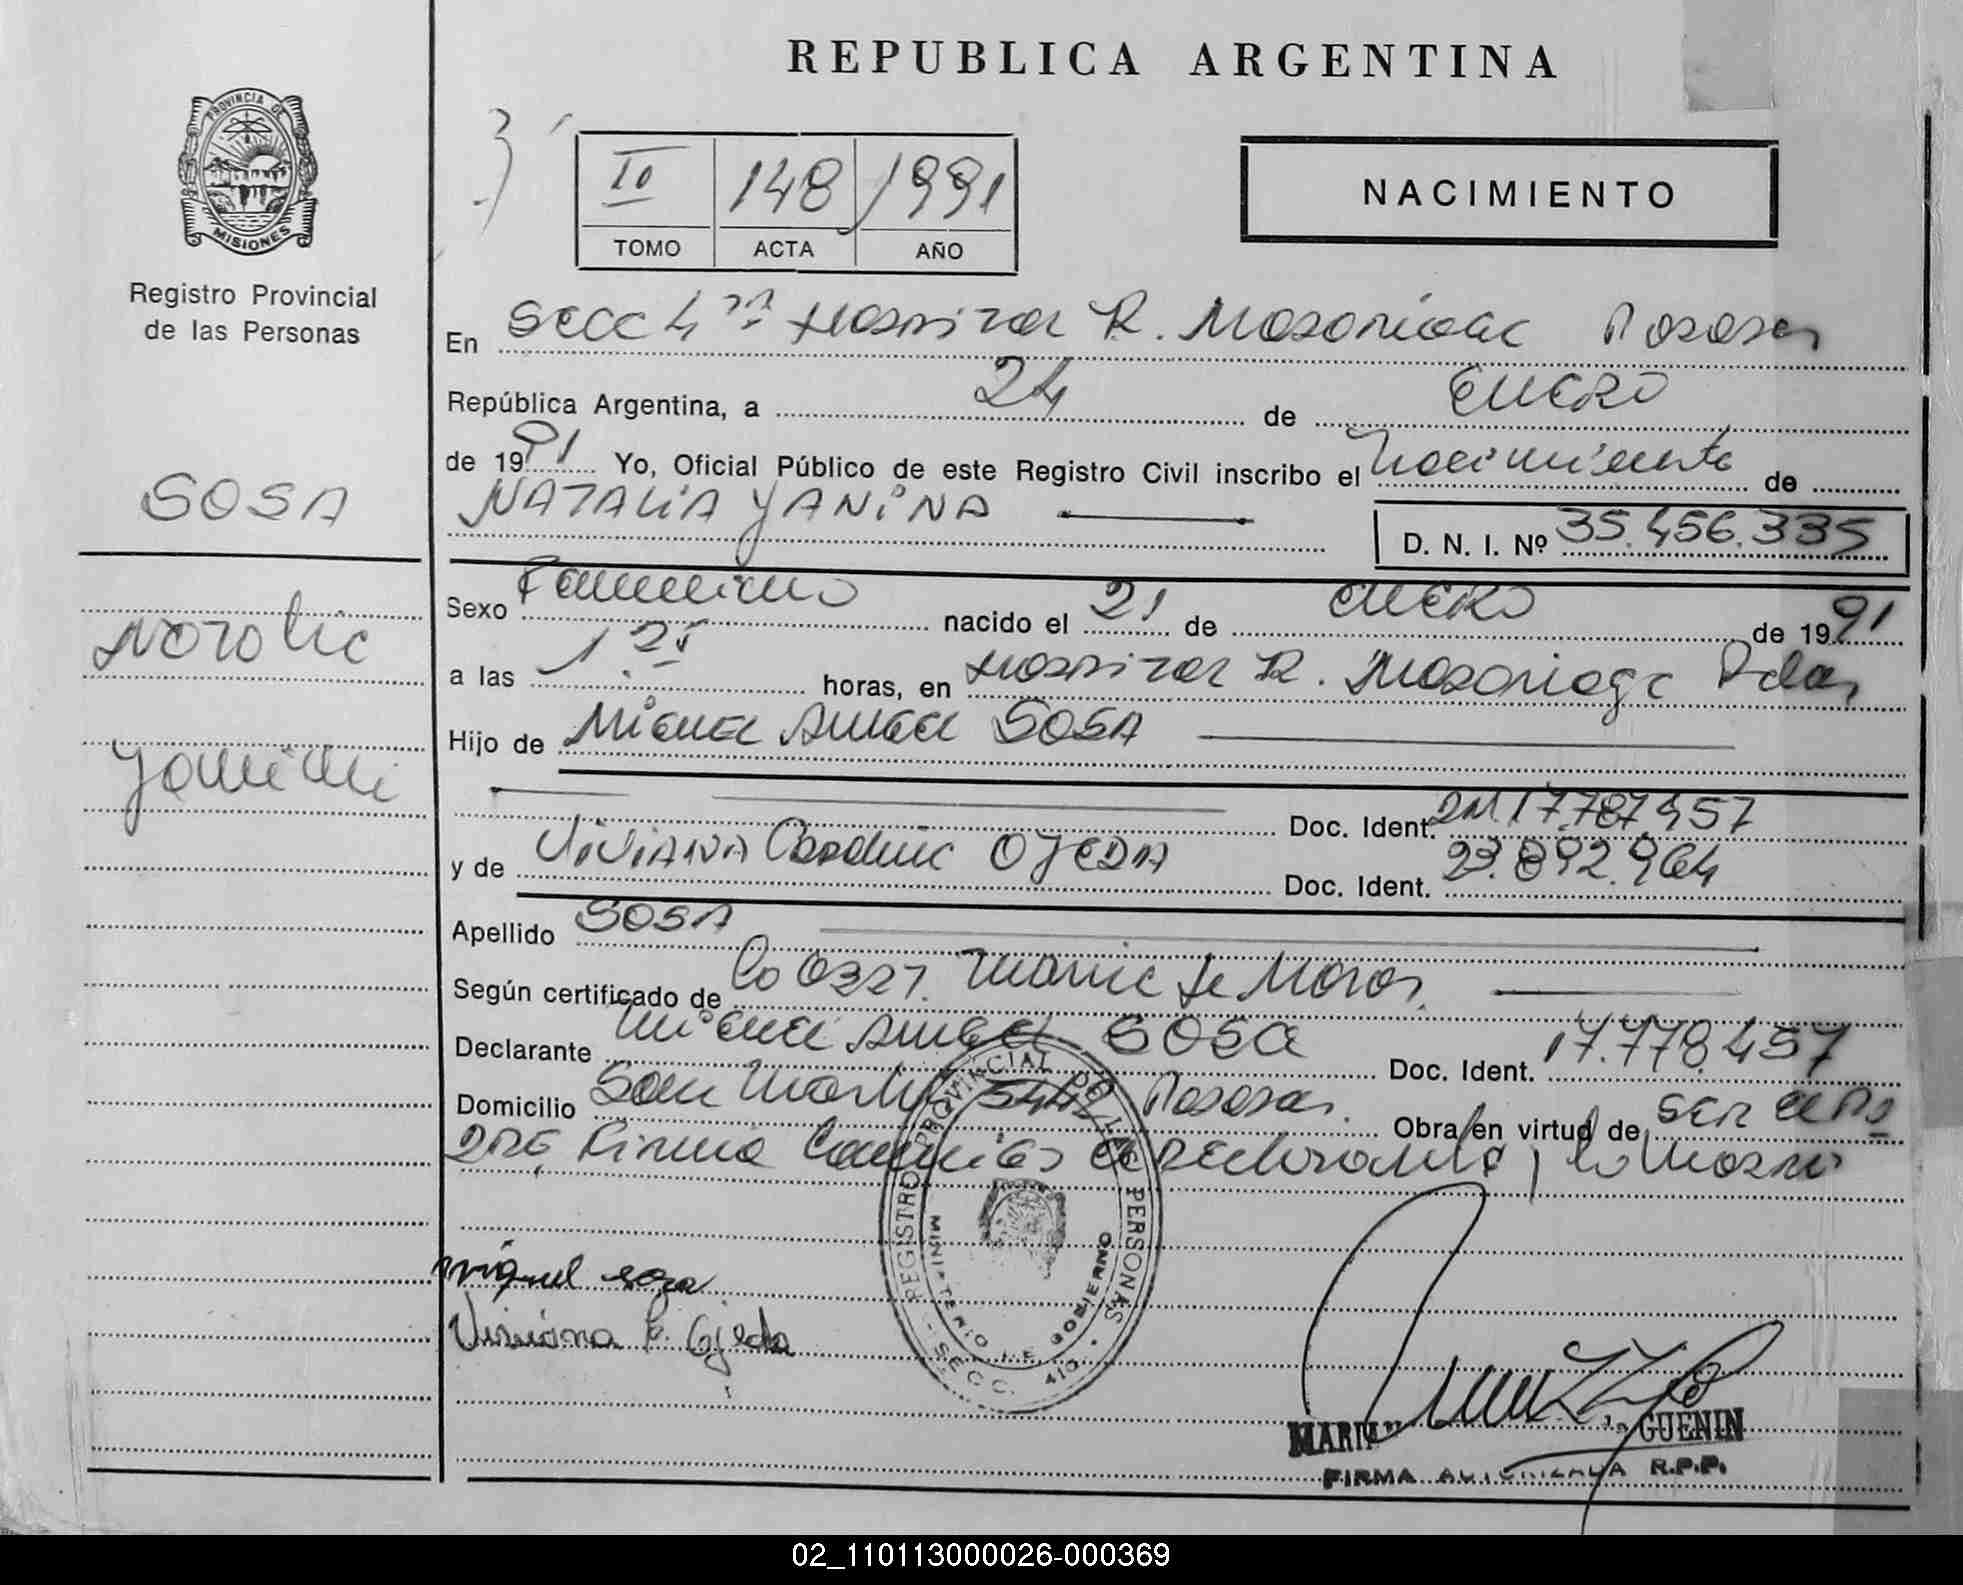 REPUBLICA ARGENTINA
PROVINCIA DE MISIONES
Registro Provincial
de las Personas
II 148 1991
TOMO ACTA AÑO
NACIMIENTO
En Secc 4ta Hospital R. Madariaga Posadas
República Argentina, a 24 de Enero
de 1991 Yo, Oficial Público de este Registro Civil inscribo el Nacimiento de
NATALiA YANiNA D. N. I. Nº 35.456.335
SOSA
Natalia
Yanina
Sexo Femenino nacido el 21 de Enero de 1991
a las 1 25 horas, en Hospital R. Madariaga Pdas
Hijo de Miguel Angel SOSA
Doc. Ident. DNI 17.787.457
y de ViViANA OJEDA Doc. Ident. 23.892.964
Apellido SOSA
Según certificado de
Declarante Miguel Angel SOSA Doc. Ident. 17.778.457
Domicilio San Martin 5442 Posadas. Obra en virtud de ser el Pa
dre Firma el declarante y
miguel sosa
Viviana Ojeda
REGISTRO PROVINCIAL DE LAS PERSONAS
MINISTERIO DE GOBIERNO
SECC. 4TO
GUENIN
FIRMA AUTORIZADA R.P.P.
02_110113000026-000369